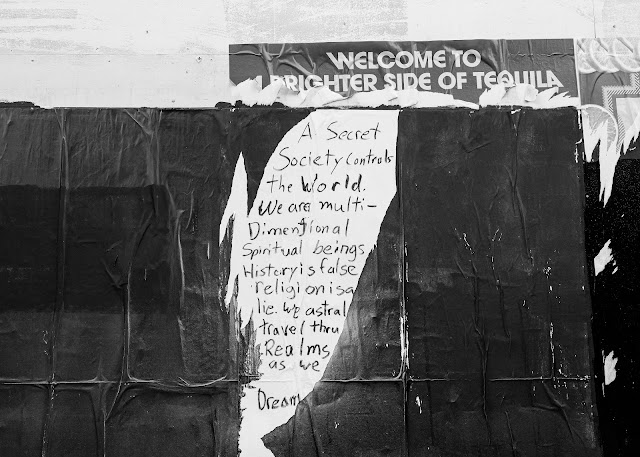 WELCOME TO
A BRIGHTER SIDE OF TEQUILA
A Secret
Society Controls
the World.
We are multi-
Dimentional
Spiritual beings
History is false
religion is a
lie. We astral
travel thru
Realms
as we
Dream